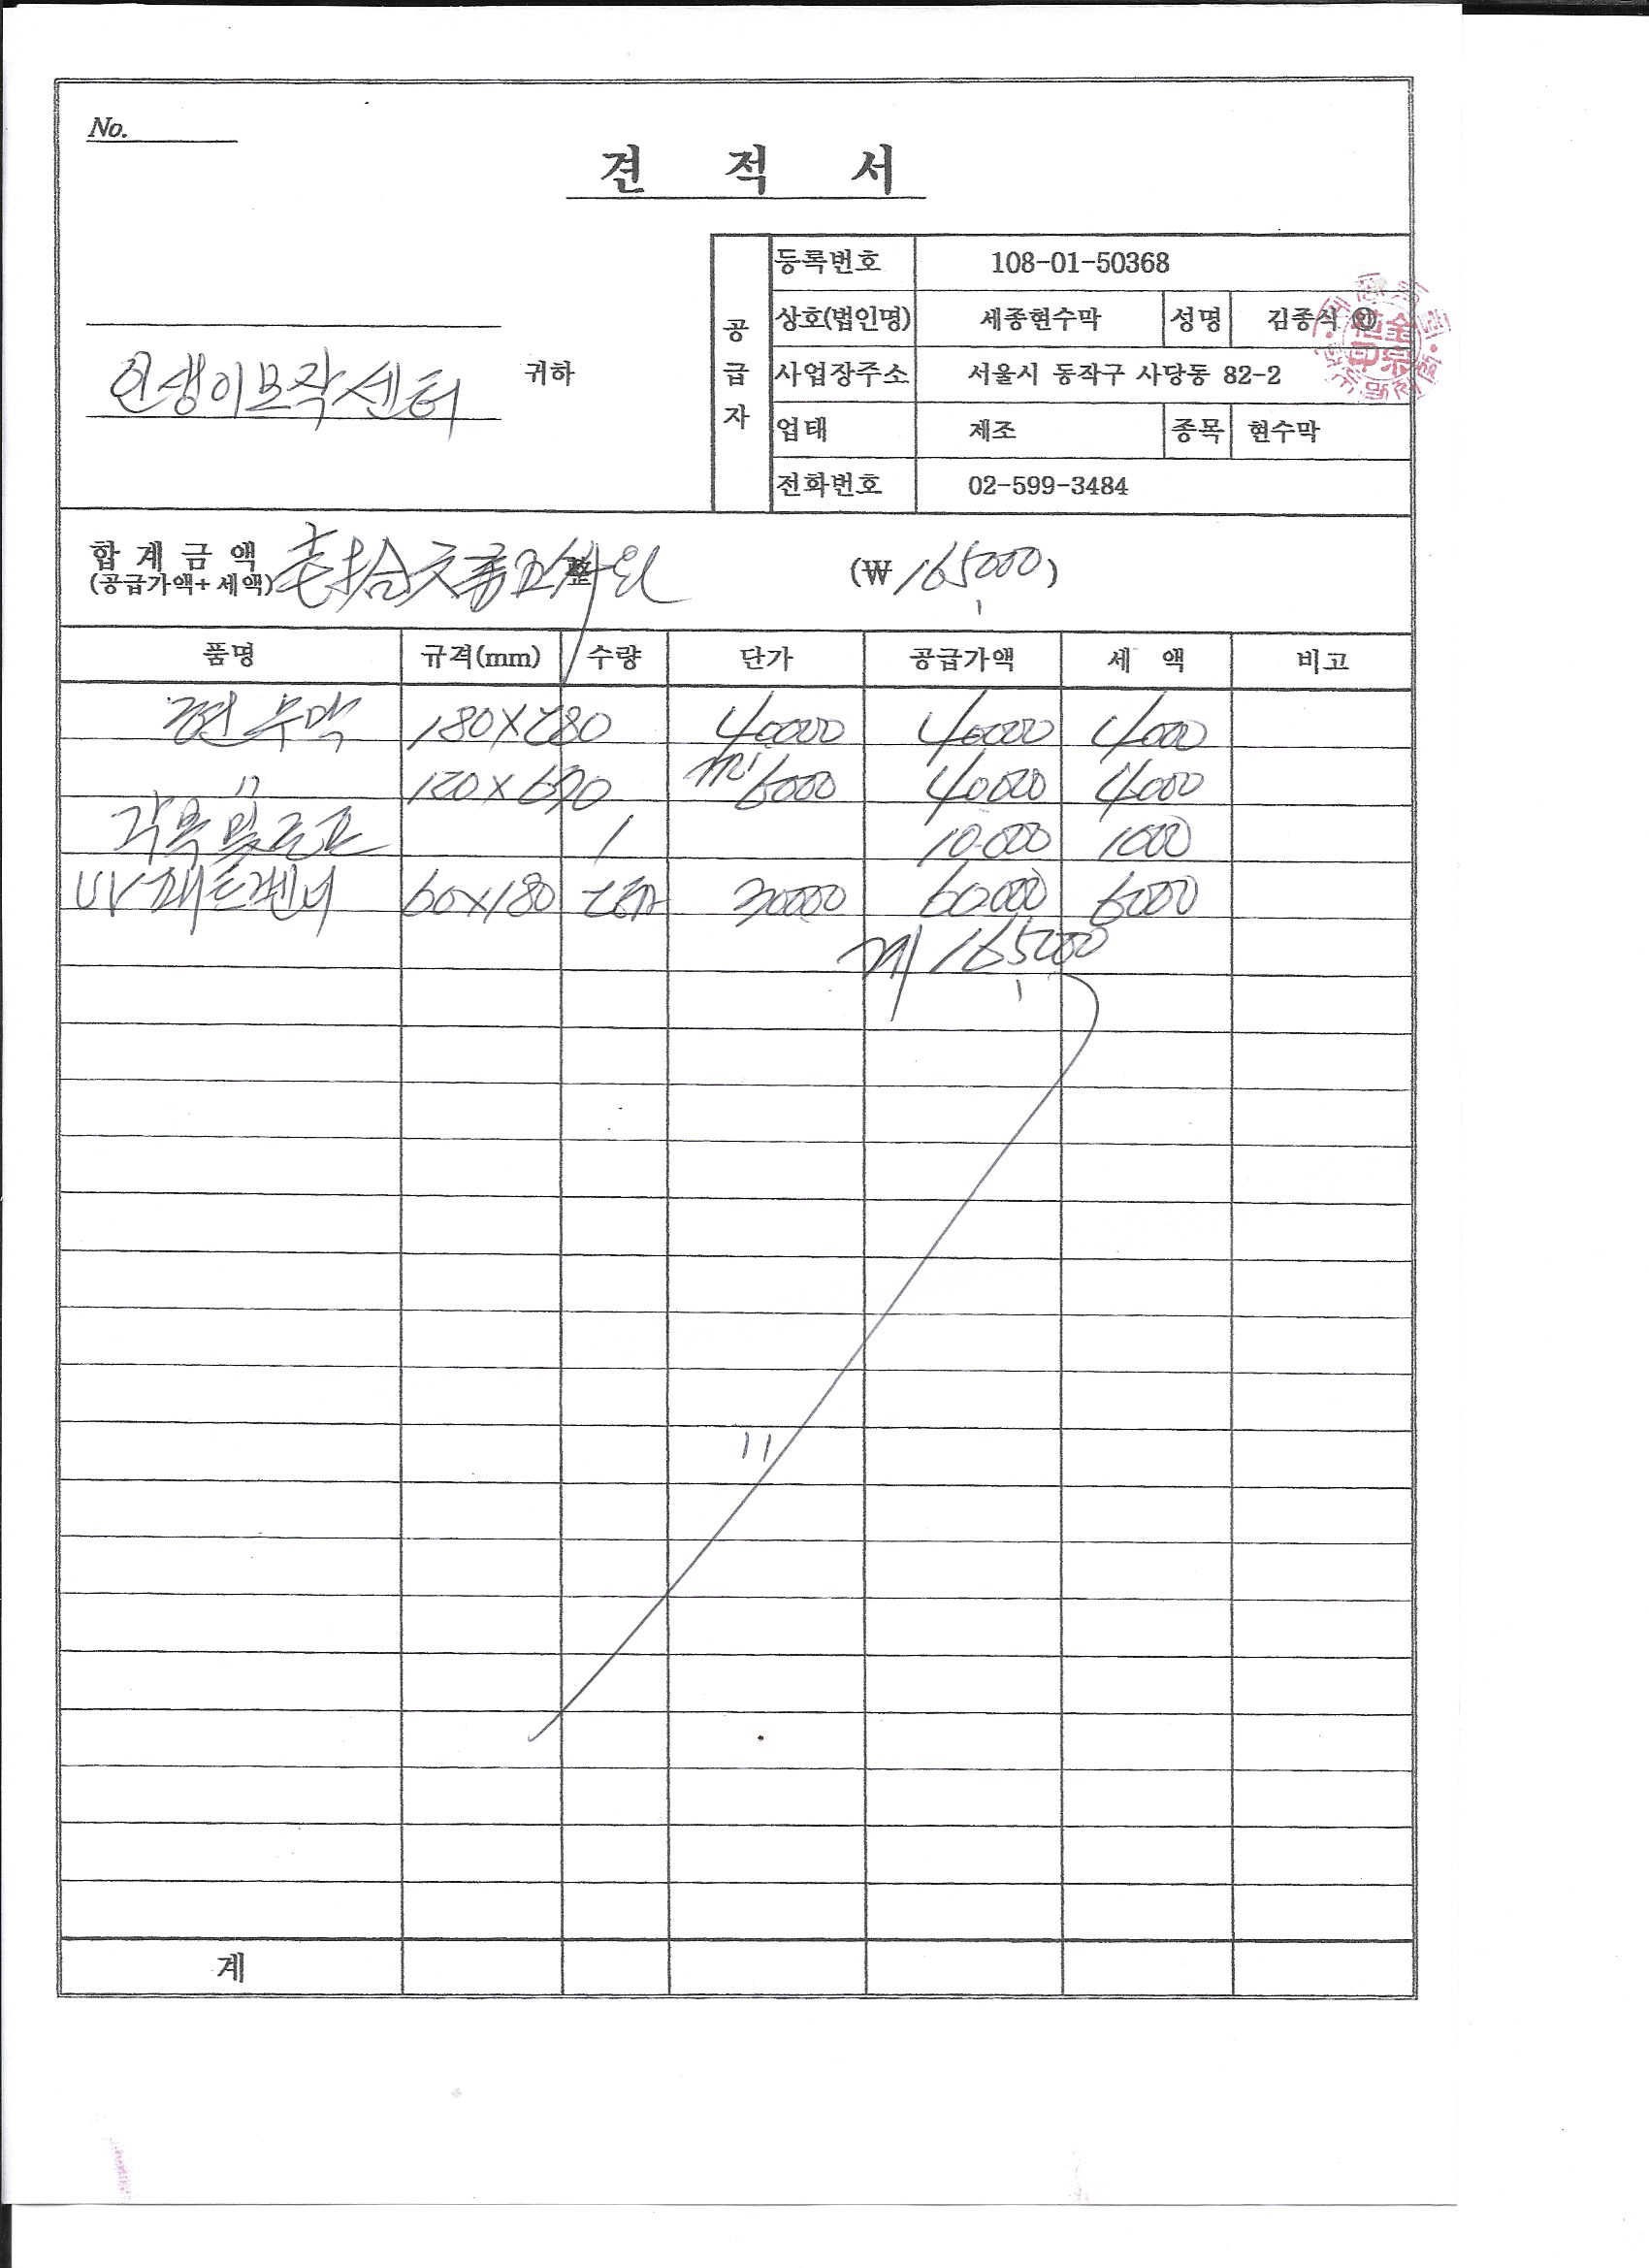 No.
견 적 서
인생이모작센터 귀하
공급자
등록번호 108-01-50368
상호(법인명) 세종현수막 성명 김종식 ㊞
사업장주소 서울시 동작구 사당동 82-2
업태 제조 종목 현수막
전화번호 02-599-3484
합 계 금 액 整 (₩ 165,000)
(공급가액+ 세액)
품명 규격(mm) 수량 단가 공급가액 세 액 비고
180×280 40000 40000 4000
〃 120×670 6000 40000 4000
각목 및 로프 1 10.000 1000
UV 60×180 30000 60.000 6000
계 165,000
계